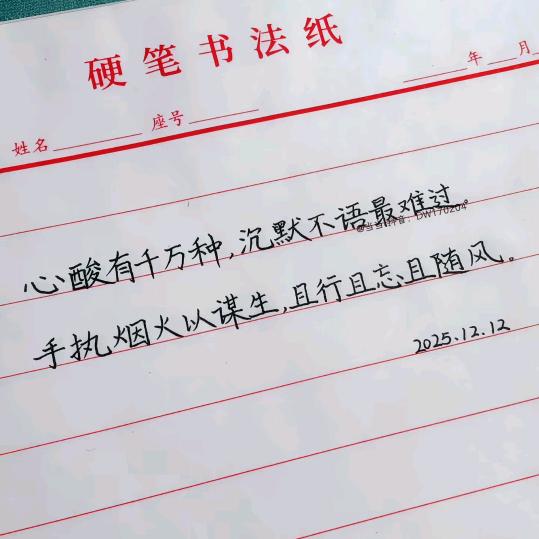 硬笔书法纸
年 月
姓名 座号
心酸有千万种,沉默不语最难过。
手执烟火以谋生,且行且忘且随风。
2025.12.12